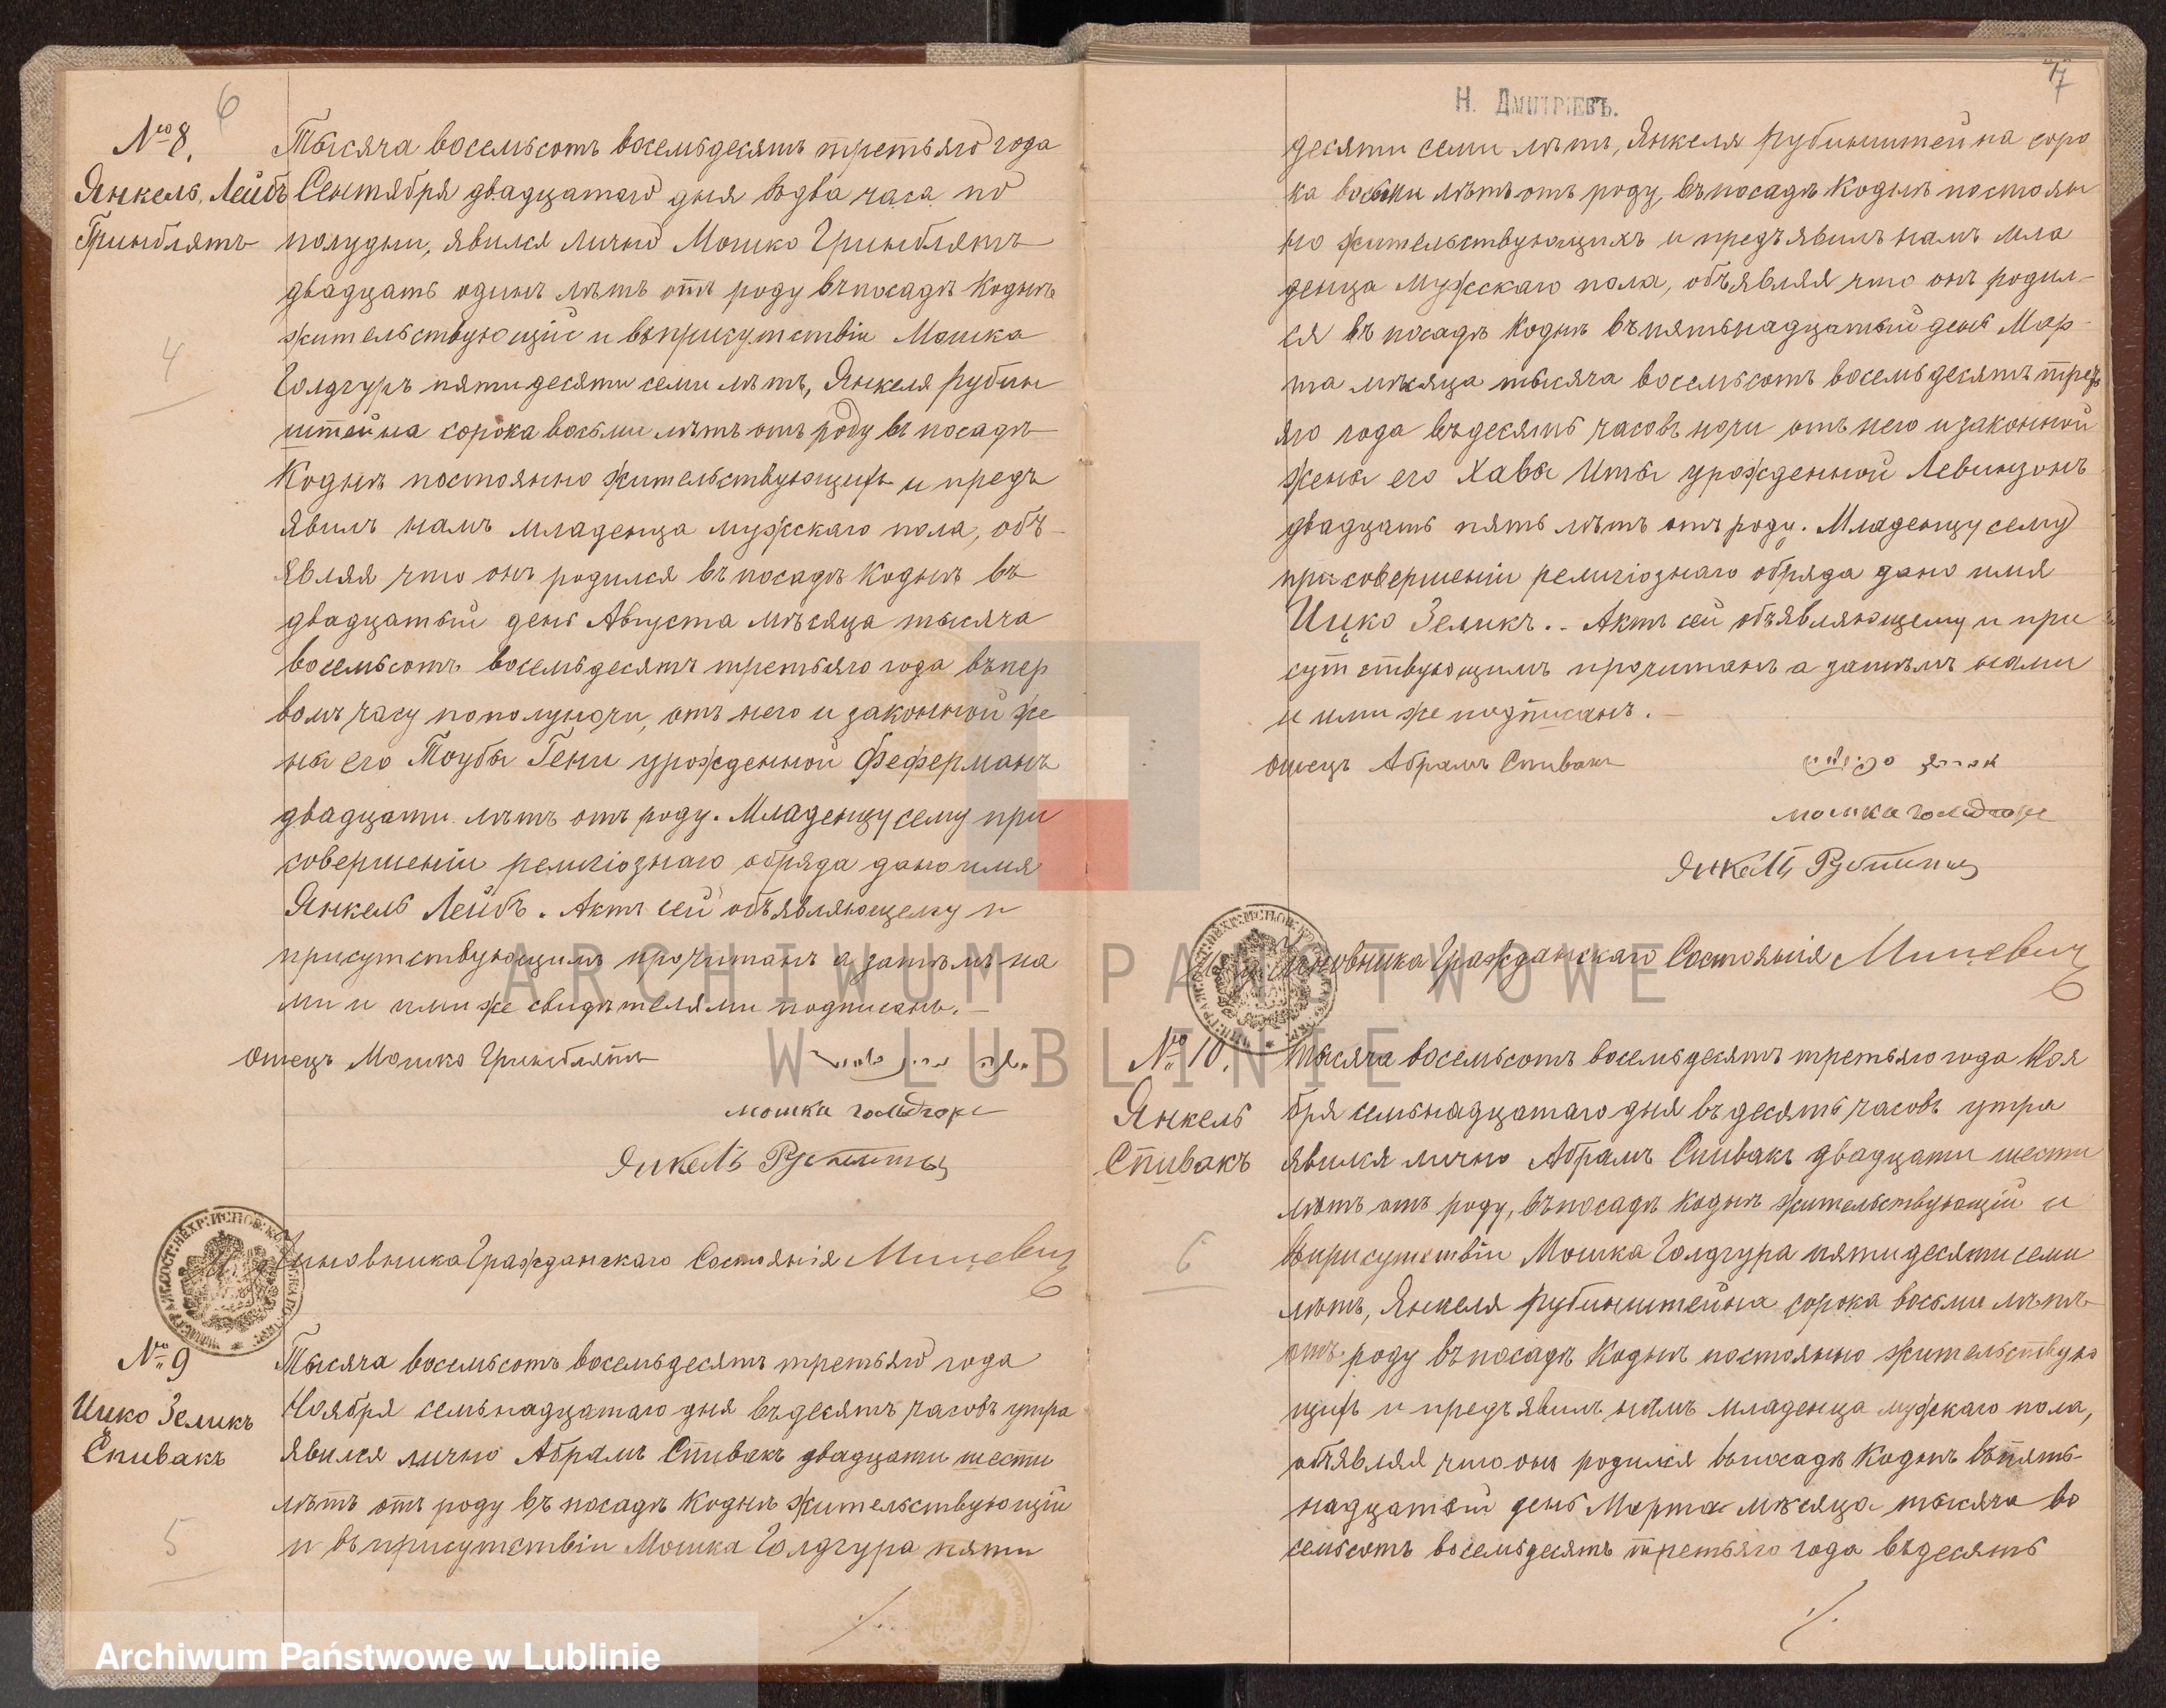 6
№ 8.
Янкель Лейбъ
Гринблятъ
4
Тысяча восемьсотъ восемьдесятъ третьяго года
Сентября двадцатаго дня въ два часа по
полудни, явился лично Мошко Гринблятъ
двадцать одинъ лѣтъ отъ роду въ посадѣ Кодынѣ
жительствующій и въ присутствіи Мошка
Голдгуръ пятидесяти семи лѣтъ, Янкеля Рубин
штейна сорока восьми лѣтъ отъ роду въ посадѣ
Кодынѣ постоянно жительствующихъ и предъ
явилъ намъ младенца мужскаго пола, объ-
являя что онъ родился въ посадѣ Кодынѣ въ
двадцатый день Августа мѣсяца тысяча
восемьсотъ восемьдесятъ третьяго года въ пер
вомъ часу пополуночи, отъ него и законной же
ны его Тоубы Гени урожденной Феферманъ
двадцати лѣтъ отъ роду. Младенцу сему при
совершеніи религіознаго обряда дано имя
Янкель Лейбъ. Актъ сей объявляющему и
присутствующимъ прочитанъ а затѣмъ на
ми и ими же свидѣтелями подписанъ.
Отецъ Мошко Гринблятъ
мошка голдгоръ
Янкель
Чиновника Гражданскаго Состоянія Мицевич
№ 9
Ицко Зеликъ
Спивакъ
5
Тысяча восемьсотъ восемьдесятъ третьяго года
Ноября семьнадцатаго дня въ десять часовъ утра
явился лично Абрамъ Спивакъ двадцати шести
лѣтъ отъ роду въ посадѣ Кодынѣ жительствующій
и въ присутствіи Мошка Голдгура пяти
7
Н. Дмитріевъ.
десяти семи лѣтъ, Янкеля Рубинштейна соро
ка восьми лѣтъ отъ роду, въ посадѣ Кодынѣ постоян
но жительствующихъ и предъявилъ намъ мла
денца мужскаго пола, объявляя что онъ родил-
ся въ посадѣ Кодынѣ въ пятьнадцатый день Мар-
та мѣсяца тысяча восемьсотъ восемьдесятъ треть
яго года въ десять часовъ ночи отъ него и законной
жены его Хавы Иты урожденной Левинзонъ
двадцать пять лѣтъ отъ роду. Младенцу сему
при совершеніи религіознаго обряда дано имя
Ицко Зеликъ. Актъ сей объявляющему и при
сутствующимъ прочитанъ а затѣмъ нами
и ими же подписанъ.
Отецъ Абрамъ Спивакъ
мошка голдгоръ
Янкель
Чиновника Гражданскаго Состоянія Мицевич
№ 10.
Янкель
Спивакъ
6
Тысяча восемьсотъ восемьдесятъ третьяго года Ноя
бря семьнадцатаго дня въ десять часовъ утра
явился лично Абрамъ Спивакъ двадцати шести
лѣтъ отъ роду, въ посадѣ Кодынѣ жительствующій и
въ присутствіи Мошка Голдгура пятидесяти семи
лѣтъ, Янкеля Рубинштейна сорока восьми лѣтъ
отъ роду въ посадѣ Кодынѣ постоянно жительствую
щихъ и предъявилъ намъ младенца мужскаго пола,
объявляя что онъ родился въ посадѣ Кодынѣ въ пять-
надцатый день Марта мѣсяца тысяча во
семьсотъ восемьдесятъ третьяго года въ десять
ARCHIWUM PAŃSTWOWE
W LUBLINIE
Archiwum Państwowe w Lublinie